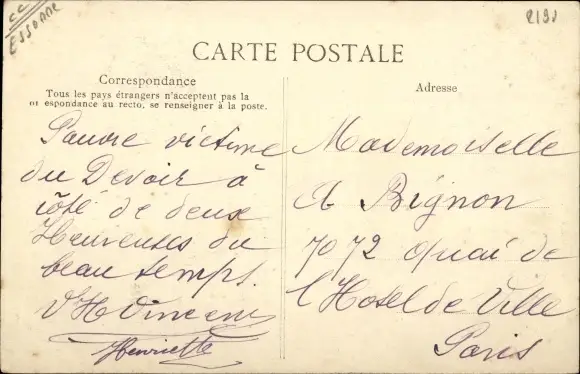 CC
ESSONNE
CARTE POSTALE
Correspondance
Tous les pays étrangers n'acceptent pas la
espondance au recto, se renseigner à la poste.
Pauvre victime
du Devoir à
côté de deux
Heureuses du
beau temps.
Henriette
Adresse
Mademoiselle
A Bignon
70 72 quai de
l'Hotel de Ville
Paris